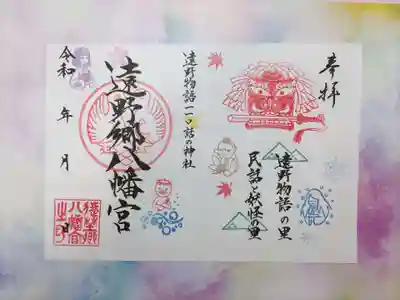 奉拝
遠野物語の里
民話と妖怪の里
遠野物語一一〇話の神社
遠野郷八幡宮
令和 年 月 日
遠野郷
八幡宮
之印